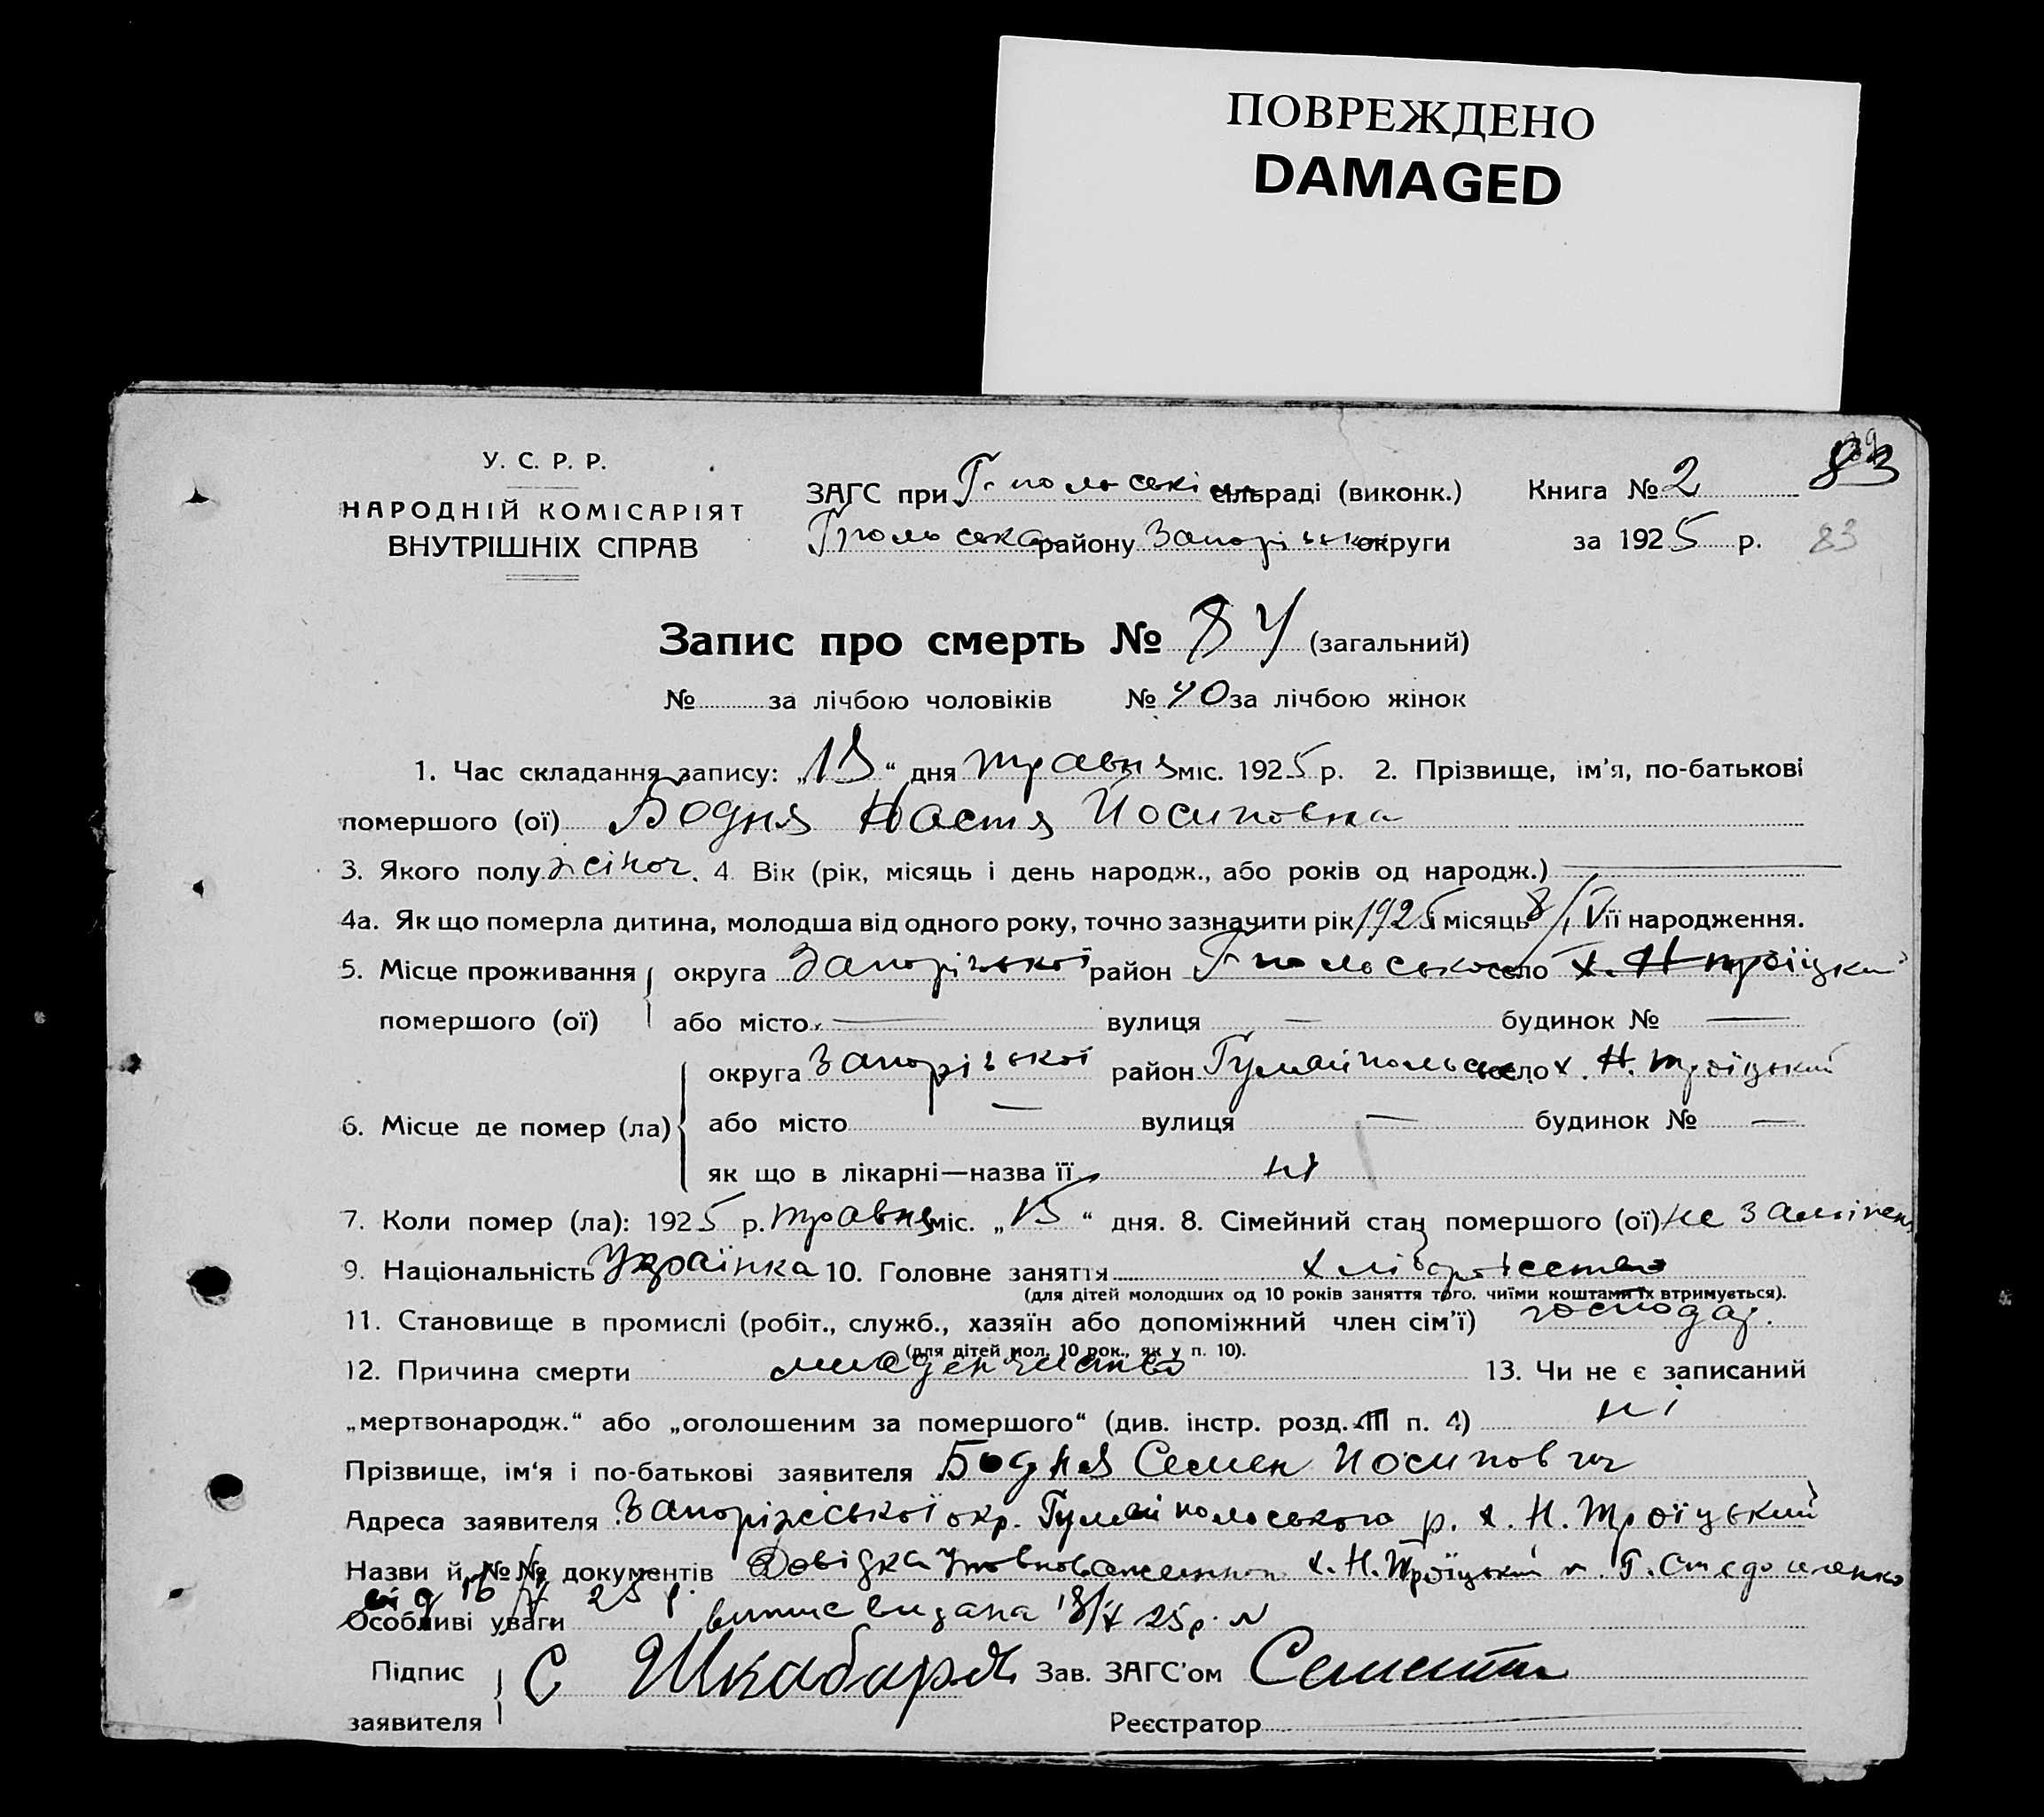 ПОВРЕЖДЕНО
DAMAGED
У. С. Р. Р.
НАРОДНІЙ КОМІСАРІЯТ
ВНУТРІШНІХ СПРАВ
ЗАГС при Г-польські сільраді (виконк.)
Гполь ська району Запорізьк округи
Книга № 2
за 1925 р.
83
83
Запис про смерть № 84 (загальний)
№ за лічбою чоловіків № 40 за лічбою жінок
1. Час складання запису: „18“ дня травня міс. 1925 р. 2. Прізвище, ім’я, по-батькові
помершого (ої) Бодня Настя Йосиповна
3. Якого полу жіноч. 4. Вік (рік, місяць і день народж., або років од народж.) —
4а. Як що померла дитина, молодша від одного року, точно зазначити рік 1925 і місяць 8/IV її народження.
5. Місце проживання помершого (ої) округа Запорізької район Гпольсько село х. Н троїцький
або місто — вулиця — будинок № —
6. Місце де помер (ла) округа Запорізької район Гуляйпольськ село х. Н. Троїцький
або місто — вулиця — будинок № —
як що в лікарні—назва її ні
7. Коли помер (ла): 1925 р. травня міс. „15“ дня. 8. Сімейний стан помершого (ої) не заміжня
9. Національність Українка 10. Головне заняття хліборобство
(для дітей молодших од 10 років заняття того, чиїми коштами їх втримується).
11. Становище в промислі (робіт., служб., хазяїн або допоміжний член сім’ї) господар.
(для дітей мол. 10 рок., як у п. 10).
12. Причина смерти младенчество 13. Чи не є записаний
„мертвонародж.“ або „оголошеним за помершого“ (див. інстр. розд. III п. 4) ні
Прізвище, ім‘я і по-батькові заявителя Бодня Семен Йосипович
Адреса заявителя Запоріжської окр. Гуляйпольського р. х. Н. Троїцький
Назви й №№ документів Довідка Уповноваженного х. Н. Троїцький
від 16/V 25 р.
Особливі уваги выпис видана 18/V 25 р. N
Підпис заявителя С Шкабаря Зав. ЗАГС’ом
Реєстратор